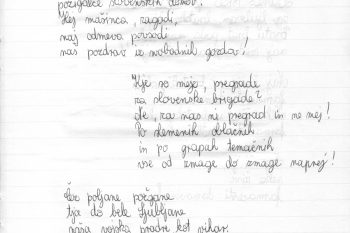 požigalce slovenskih domov!
Hej mašinca, zagodi,
naj odmeva povsodi
naš pozdrav iz svobodnih gozdov!
Kje so meje, pregrade
za slovenske brigade?
Ne, za nas ni pregrad in ne mej!
Po kamenih oblačnih
in po grapah temačnih
vse od zmage do zmage naprej!
Čez poljane požgane
tja do bele Ljubljane
naša vojska prodre kot vihar.